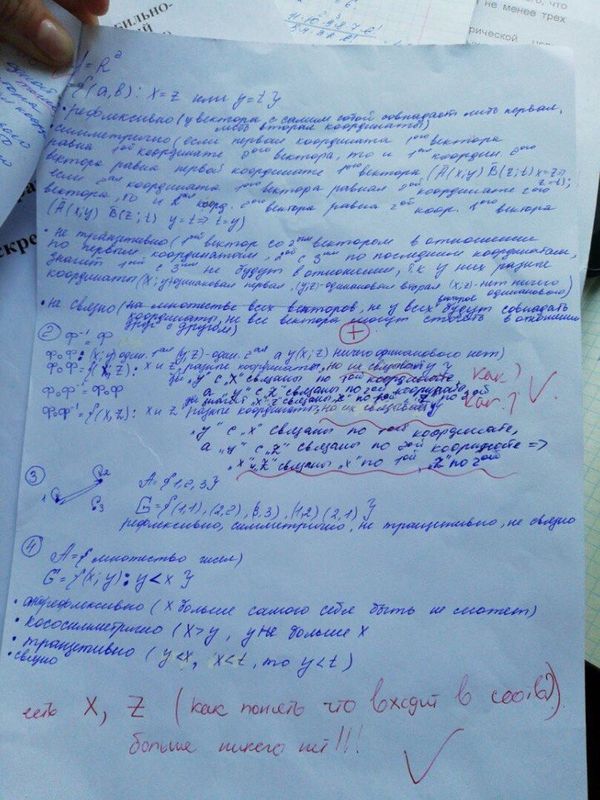 бильно-
что
не менее трех
рической
A = R²
{(a, b): x=z или y=t}
• рефлексивно (у вектора с самим собой совпадает либо первая,
либо вторая координаты)
симметрично (если первая координата 1ого вектора
равна 1ой координате 2ого вектора, то и 1ая коорд. 2ого
вектора равна первой координате 1ого вектора (A(x,y) B(z;t) x=z⇒
z=x);
если 2ая координата 1ого вектора равна 2ой координате 2ого
вектора, то и 2ая коорд. 2ого вектора равна 2ой коор. 1ого вектора
(A(x;y) B(z;t) y=t⇒t=y)
• не транзитивно (1ый вектор со 2ым вектором в отношении
по первым координатам, 2ой с 3им по последним координатам,
значит 1ый с 3им не будут в отношении, т.к у них разные
координаты (x;y) одинаковая первая, (y;z) одинаковая вторая (x,z) нет ничего
одинакового)
• не связно (на множестве всех векторов, не у всех векторов будут совпадать
координаты, не все вектора могут стоять в отношении
друг с другом)
② Ф⁻¹ = Ф
Ф∘Ф: (x;y) один. 1ая (y,z)-один. 2ая а у (x;z) ничего одинакового нет)
Ф∘Ф = {(x,z): x и z разные координаты, но их связывает y}
"y" с "x" связаны по 1ой координате
Ф∘Ф⁻¹ = Ф∘Ф
Ф∘Ф⁻¹ = {(x,z): x и z разные координаты, но их связывает y
"y" с "x" связаны по 1ой координате,
а "y" с "z" связаны по 2ой координате ⇒
"x" и "z" связаны "x" по 1ой, "z" по 2ой
как?
как?
③
A = {1,2,3}
G = {(1,1), (2,2), (3,3), (1,2) (2,1)}
рефлексивно, симметрично, не транзитивно, не связно
④ A = {множество чисел}
G = {(x;y): y<x}
• антирефлексивно (x больше самого себя быть не может)
• кососимметрично (x>y, y не больше x
• транзитивно (y<x, x<t, то y<t)
• связно
есть X, Z (как понять что входит в соотв?).
больше ничего нет!!!